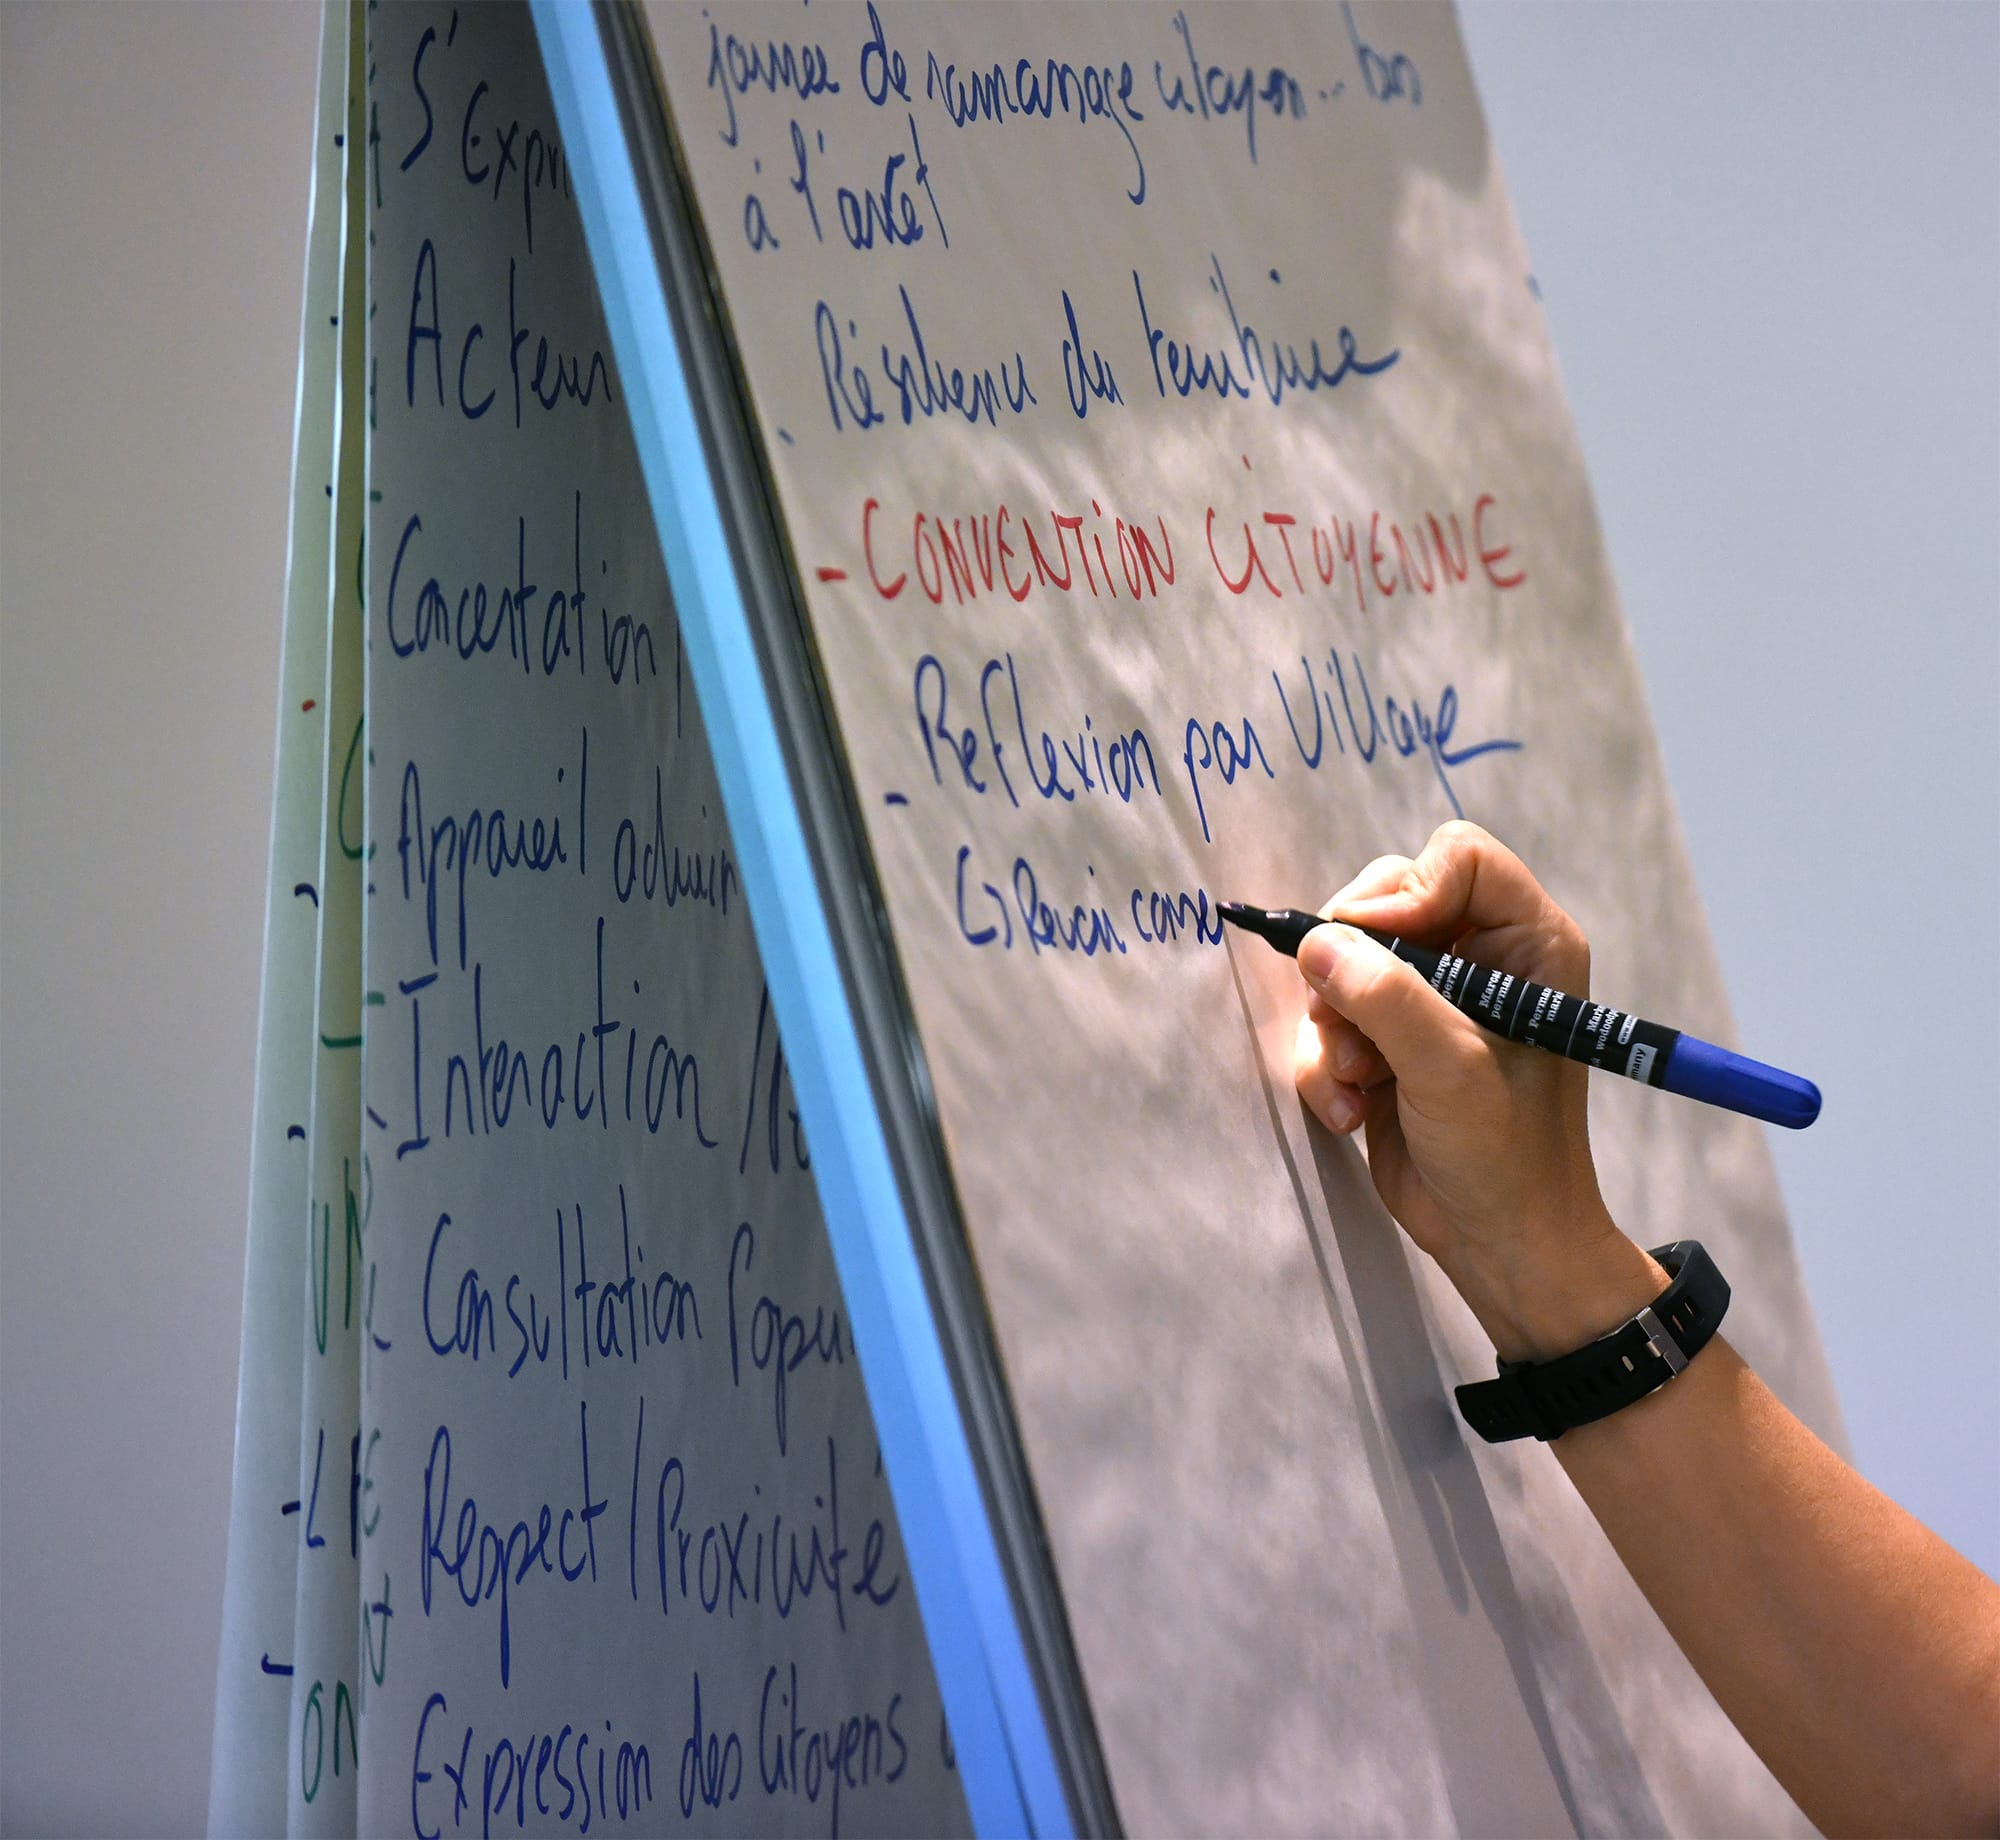 S'Expri
Acteur
Concertation /
Appareil admin
Interaction /
Consultation Popu
Respect / Proximité
Expression des Citoyens
journée de ramassage citoyen..
à l'arrêt
du territoire
- CONVENTION CITOYENNE
- Reflexion par Village
Revoir conse
Permanent
many
UN
ON